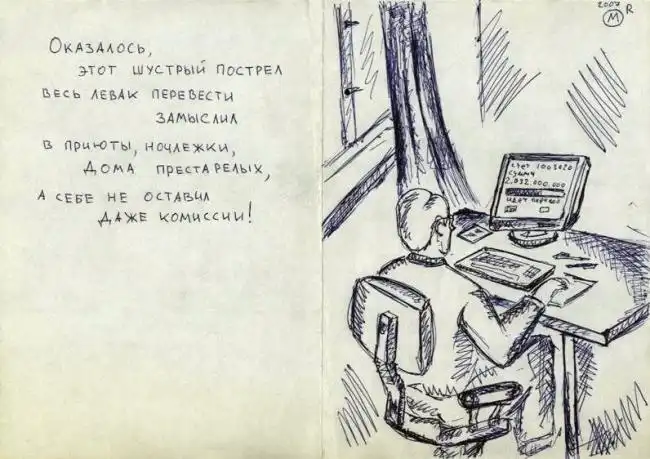 Оказалось,
этот шустрый пострел
весь левак перевести
замыслил
в приюты, ночлежки,
дома престарелых,
а себе не оставил
даже комиссии!
2007
М R
счет 1003020
сумма
2.032.000.000
идет перевод